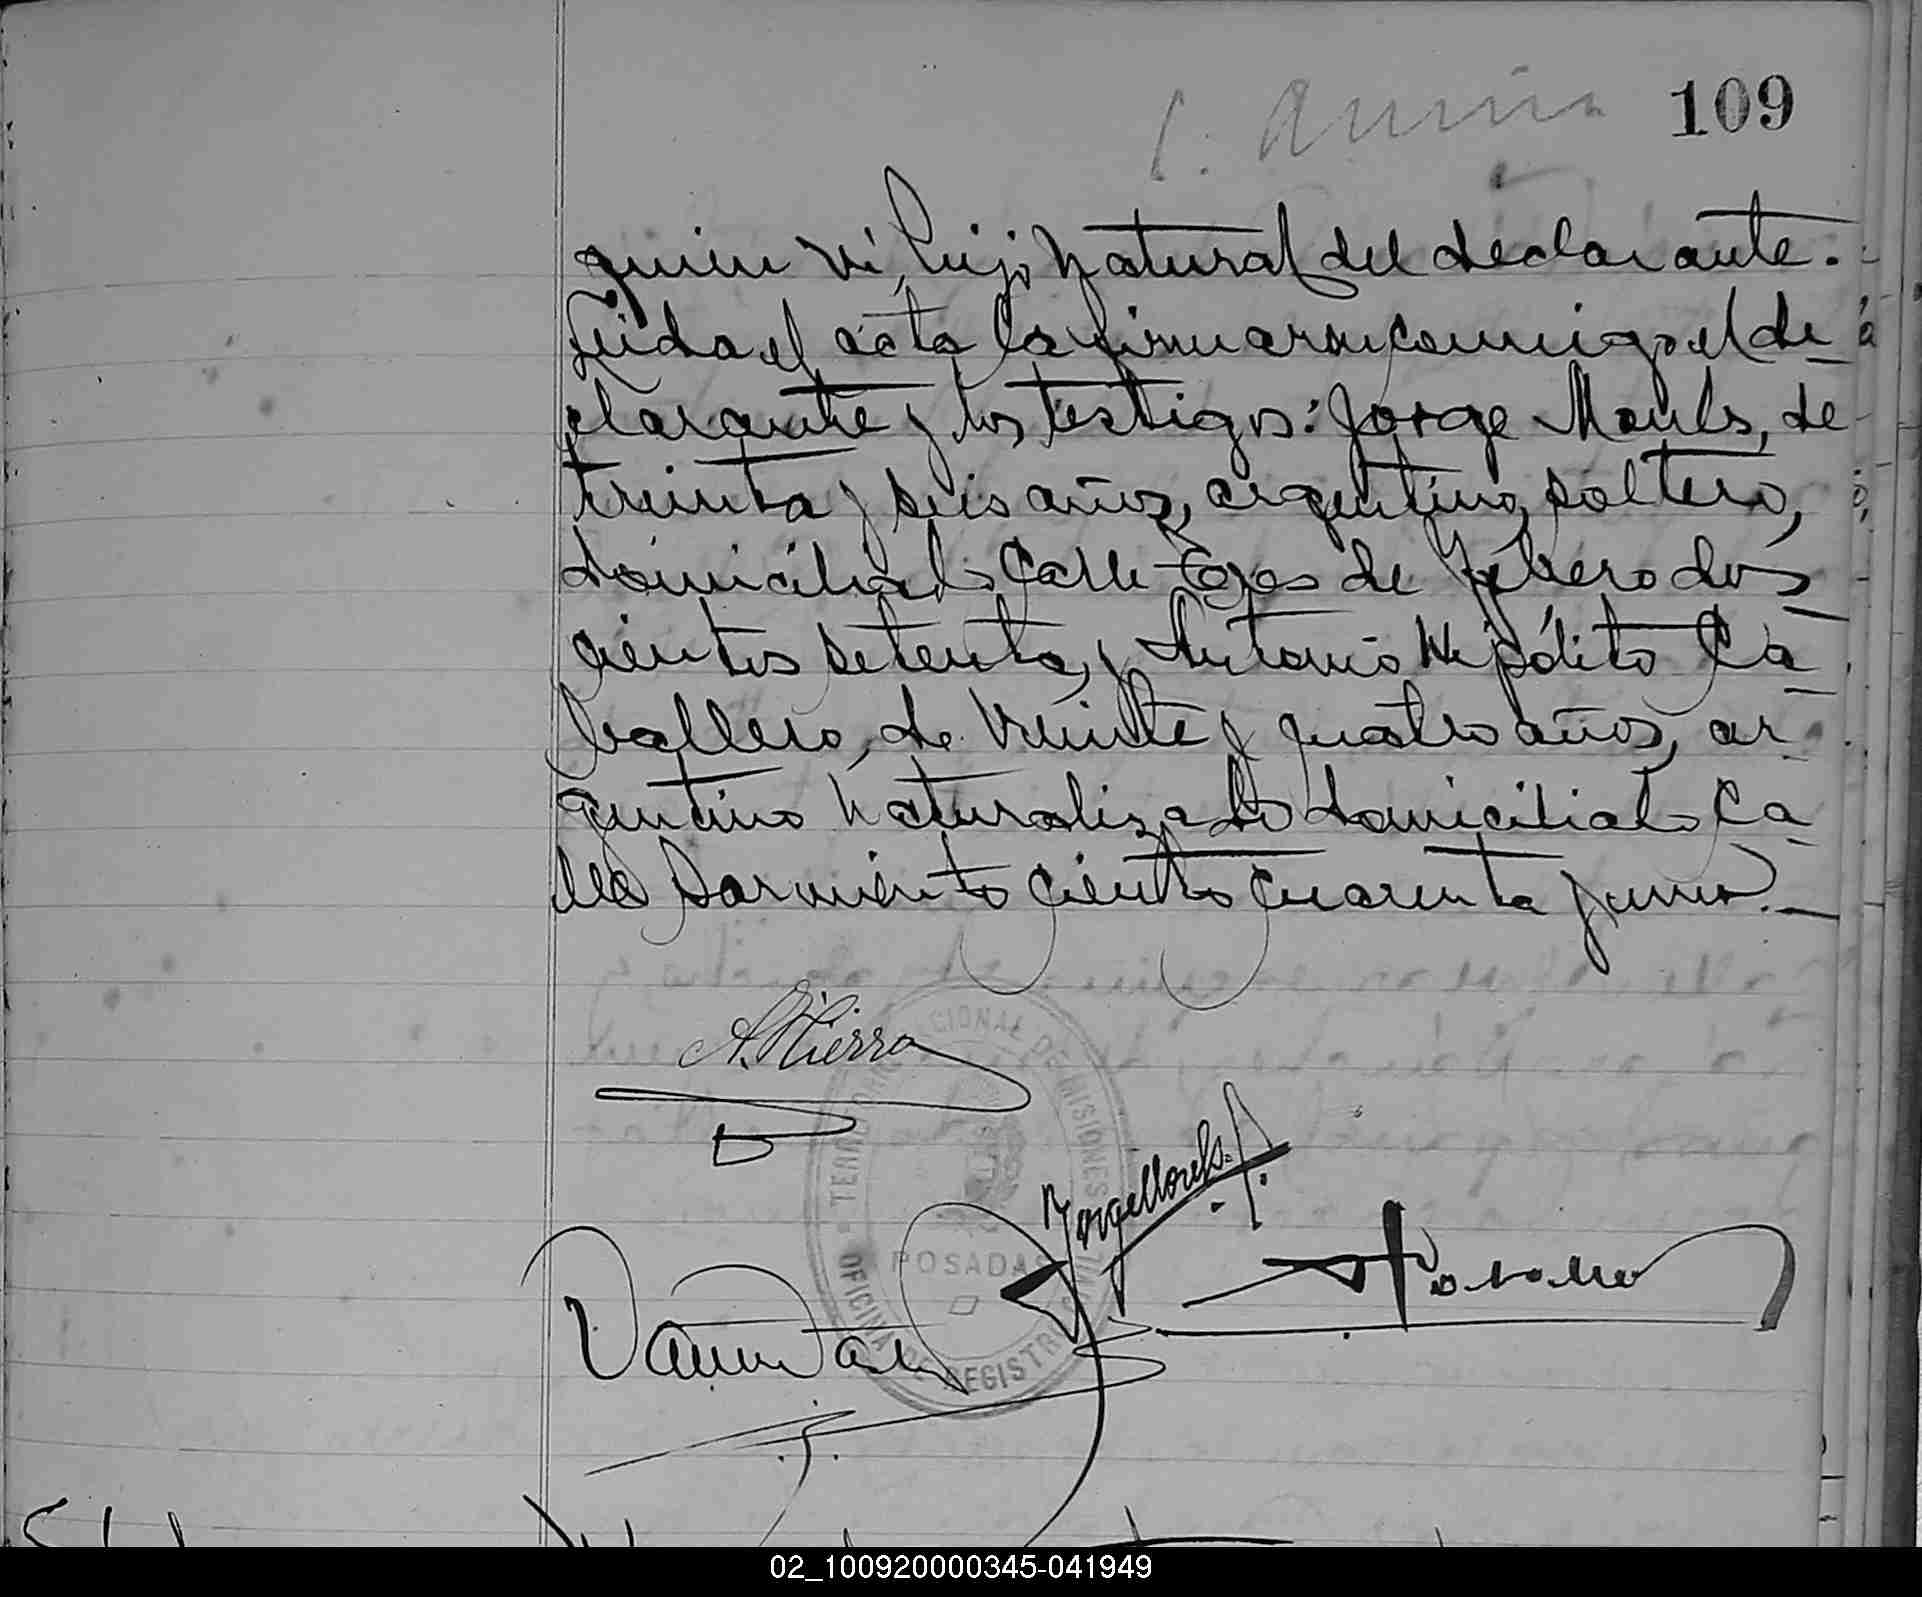 109
quien vi, hijo natural del declarante.
Leida el acta la firmaron conmigo el de
clarante y los testigos: Jorge Morels, de
treinta y seis años, argentino, soltero,
domiciliado Calle Fojas de Febero dos
cientos setenta, y Antonio Hipólito Ca
ballero, de veinte y cuatro años, ar
gentino naturalizado domiciliado Ca
lle Sarmiento ciento cuarenta y uno.
A. Hierro
Jorge Morels
TERRITORIO NACIONAL DE MISIONES
POSADAS
OFICINA DE REGISTRO CIVIL
02_100920000345-041949